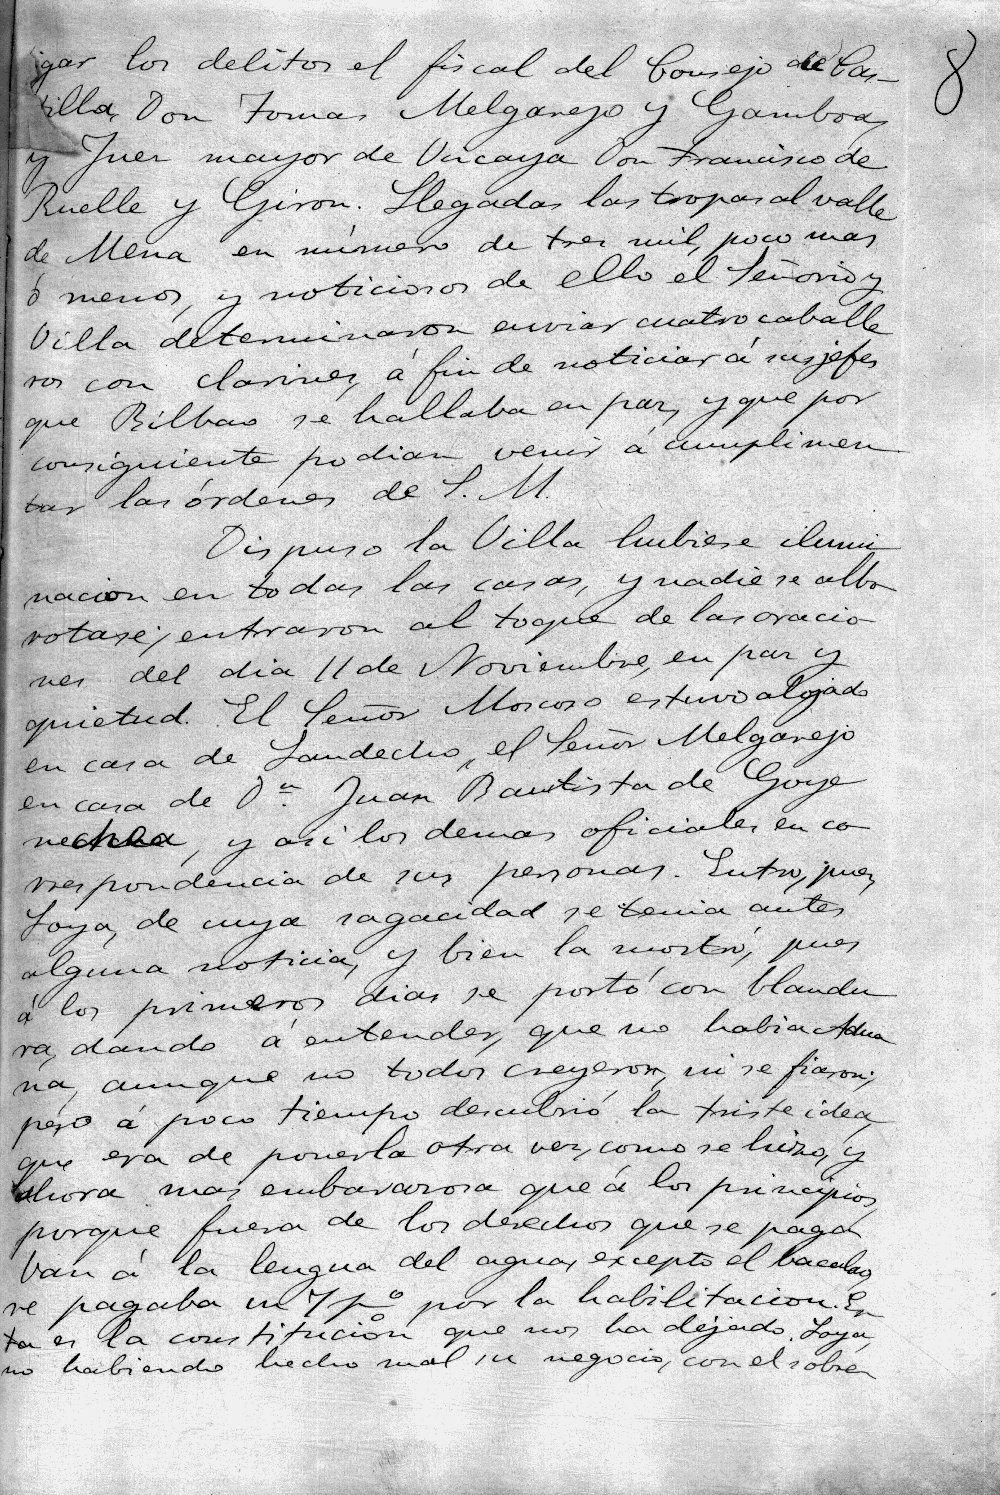 8
igar los delitos el fiscal del Consejo de Cas-
tilla, Don Tomas Melgarejo y Gamboa,
y Juez mayor de Vizcaya Don Francisco de
Ruelle y Giron. Llegadas las tropas al valle
de Mena en número de tres mil, poco mas
ó menos, y noticiosos de ello el Señorio y
Villa determinaron enviar cuatro caballe
ros con clarines, á fin de noticiar á sus jefes
que Bilbao se hallaba en paz, y que por
consiguiente podian venir á cumplimen
tar las órdenes de S. M.
Dispuso la Villa hubiese ilumi
nacion en todas las casas, y nadie se albo
rotase; entraron al toque de las oracio
nes del dia 11 de Noviembre, en paz y
quietud. El Señor Moscoso estuvo alojado
en casa de Landecho, el Señor Melgarejo
en casa de Dn. Juan Bautista de Goye
nechea, y asi los demas oficiales en co
rrespondencia de sus personas. Entró, pues,
Loya, de cuya sagacidad se tenia antes
alguna noticia, y bien la mostró, pues
á los primeros dias se portó con blandu
ra, dando á entender, que no habia Adua
na, aunque no todos creyeron, ni se fiaron;
pero á poco tiempo descubrió la triste idea,
que era de ponerla otra vez, como se hizo, y
ahora mas embarazosa que á los principios,
porque fuera de los derechos que se paga
ban á la lengua del agua, excepto el bacalao
se pagaba un 7 p% por la habilitacion. Es
ta es la constitución que nos ha dejado. Loya,
no habiendo hecho mal su negocio, con el sobre